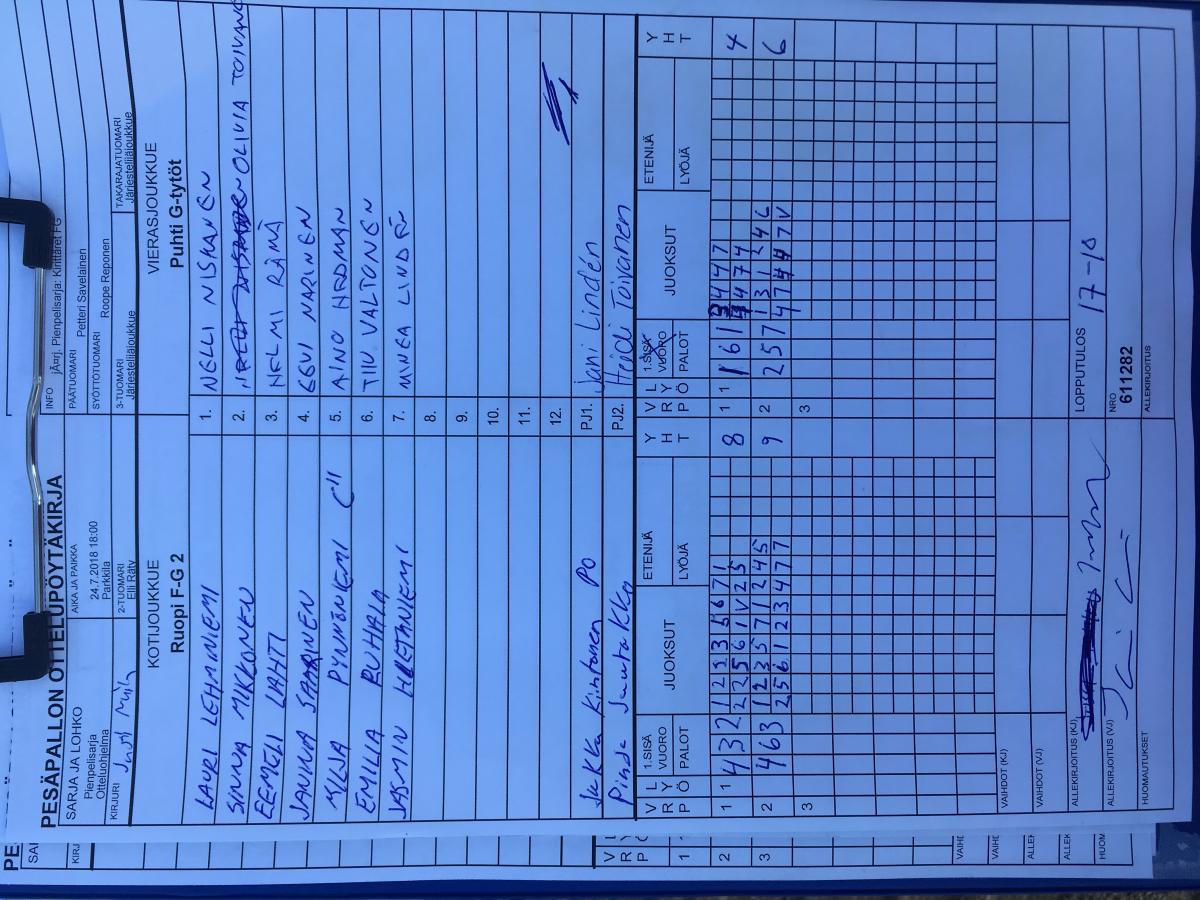 PESÄPALLON OTTELUPÖYTÄKIRJA
SARJA JA LOHKO
Pienpelisarja
Otteluohjelma
AIKA JA PAIKKA
24.7.2018 18:00
Parkkila
INFO jÃ¤rj. Pienpelisarja: Kirittäret FG
PÄÄTUOMARI Petteri Savelainen
SYÖTTÖTUOMARI Roope Reponen
KIRJURI
2-TUOMARI
Elli Räty
3-TUOMARI
Järjestelijäjoukkue
TAKARAJATUOMARI
Järjestelijäjoukkue
KOTIJOUKKUE VIERASJOUKKUE
Ruopi F-G 2 Puhti G-tytöt
LAURI LEHMINIEMI 1. NELLI NISKANEN
SINNA MIKKONEN 2. OLIVIA TOIVANEN
EEMELI LAHTI 3. HELMI RÄMÄ
JANINA SAARINEN 4. EEVI NARINEN
MILJA PYNNÖNIEMI C" 5. AINO HEDMAN
EMILIA RUHALA 6. TIIU VALTONEN
JASMIN HIETANIEMI 7. MINEA LINDÉN
8.
9.
10.
11.
12.
Jukka Kiintonen PO PJ1. Jani Lindén
PJ2. Heidi Toivanen
V R P L Y Ö 1.SISÄ VUORO PALOT JUOKSUT ETENIJÄ LYÖJÄ Y H T V R P L Y Ö 1.SISÄ VUORO PALOT JUOKSUT ETENIJÄ LYÖJÄ Y H T
1 1 4 3 2 1 2 2 3 5 6 7 1 8 1 1 1 6 1 4 4 7 4
2 2 5 6 1 V 2 5 4 7 4
2 4 6 3 1 2 3 5 7 1 2 4 5 9 2 2 5 7 1 3 1 2 4 6 6
2 5 6 1 2 3 4 7 7 4 7 4 4 7 V
3 3
VAIHDOT (KJ)
VAIHDOT (VJ)
ALLEKIRJOITUS (KJ)
LOPPUTULOS 17-10
ALLEKIRJOITUS (VJ)
NRO
611282
HUOMAUTUKSET
ALLEKIRJOITUS